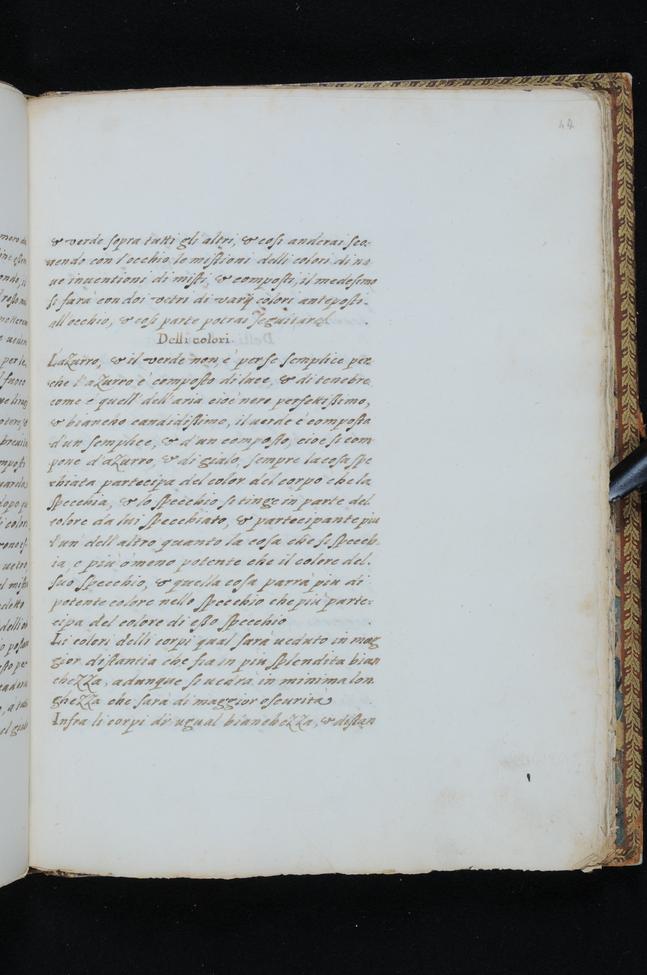 47
& verde sopra tutti gli altri, & cosi anderai seg-
uendo con l'occhio le mistioni delli colori di no
ue inuentioni di misti, & composti, il medesimo
si fara con doi vetri di varij colori anteposti
all'occhio, & cosi parte potrai seguitare.
Delli colori
Lazurro, & il verde non, è perse semplice per
che l'azurro è composto di luce, & di tenebre
come e quell' dell'aria cioe nero perfettissimo,
& biancho candidissimo, il uerde è composto
d'un semplice, & d'un composto, cioe si com
pone d'azurro, & di gialo, sempre la cosa spe
chiata partecipa del color del corpo che la
specchia, & lo specchio si tinge in parte del
colore da lui specchiato, & partecipante piu
l'un dell'altro quanto la cosa che si specch
ia, e più ò meno potente che il colore del
suo specchio, & quella cosa parra piu di
potente colore nello specchio che più parte-
cipa del colore di esso specchio
Li colori delli corpi qual sarà ueduto in mag
gior distantia che sia in più splendita bian
chezza, adunque si uedra in minima lon
ghezza che sarà di maggior oscurità
Infra li corpi di ugual bianchezza, & distan